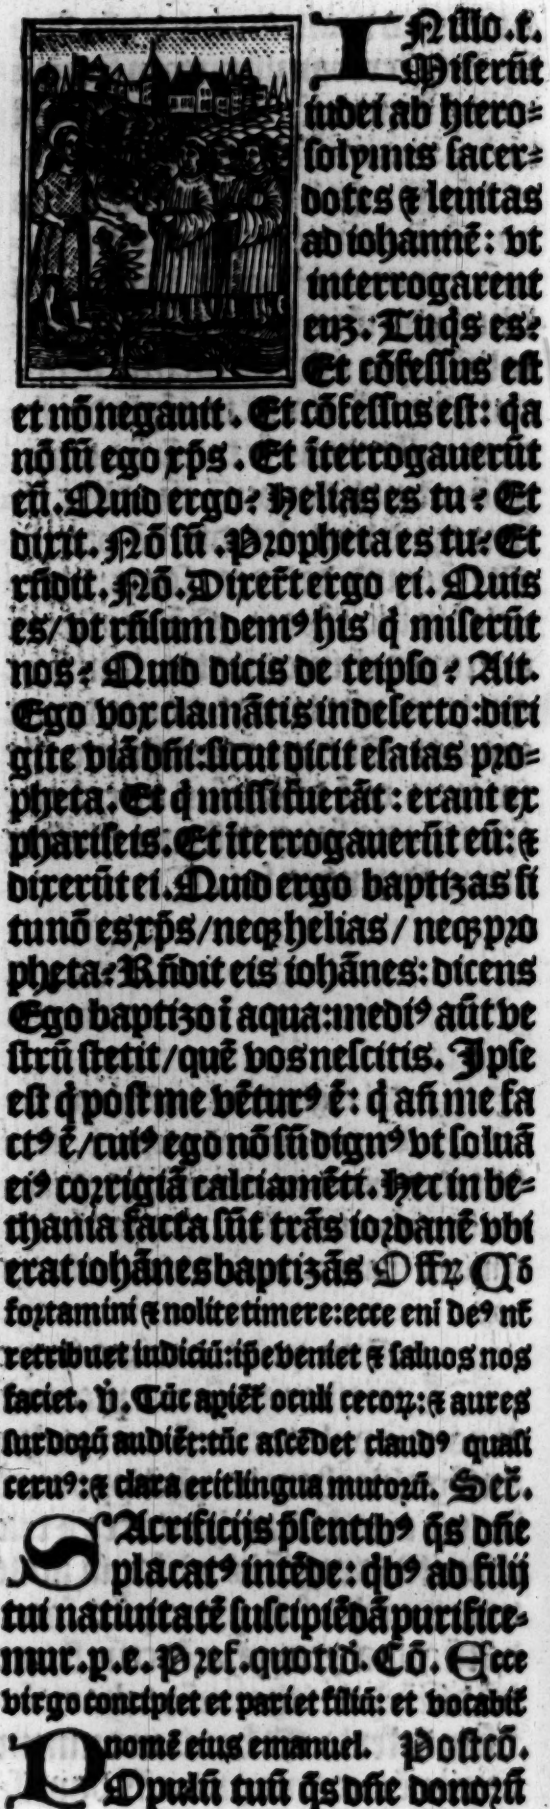 INillo.t̄.
Miserūt
iudei ab hiero=
solymis sacer=
dotes ⁊ leuitas
ad iohannē: vt
interrogarent
euʒ. Tu q̇s es?
Et cōfessus est
et nō negauit. Et cōfessus est: q̇a
nō sū ego xp̄s. Et īterrogauerūt
eū. Quid ergo? Helias es tu? Et
dixit. Nō sū. Propheta es tu? Et
rn̄dit. Nō. Dixer̄t ergo ei. Quis
es/ vt rn̄sum demꝰ his q̇ miserūt
nos? Quid dicis de teipso? Ait.
Ego vox clamātis in deserto: diri
gite viā dn̄i: sicut dicit esaias pro=
pheta. Et q̇ missi fuerāt: erant ex
phariseis. Et īterrogauerūt eū: ⁊
dixerūt ei. Quid ergo baptizas si
tu nō es xp̄s/ neqꝫ helias/ neqꝫ pro
pheta? Rn̄dit eis iohānes: dicens
Ego baptizo ī aqua: mediꝰ aūt ve
strū stetit/ quē vos nescitis. Ipse
est q̇ post me vēturꝰ ē: q̇ an̄ me fa
ctꝰ ē/ cuiꝰ ego nō sū dignꝰ vt soluā
eiꝰ corrigiā calciamēti. Hec in be=
thania facta sūt trās iordanē vbi
erat iohānes baptizās Offꝝ Cō
fortamini ⁊ nolite timere: ecce eni deꝰ nr̄
retribuet iudiciū: ip̄e veniet ⁊ saluos nos
faciet. v̇. Tūc apiēt̄ oculi cecoꝝ: ⁊ aures
surdorū audiēt: tūc ascēdet claudꝰ quasi
ceruꝰ: ⁊ clara erit lingua mutorū. Secr̄.
SAcrificijs p̄sentibꝰ q̄s dn̄e
placatꝰ intēde: q̇bꝰ ad filij
tui natiuitatē suscipiēdā purifice=
mur. p. e. Pref. quotid̄. Cō. Ecce
virgo concipiet et pariet filiū: et vocabit̄
nomē eius emanuel. Postcō.
POpulū tuū q̄s dn̄e donorū